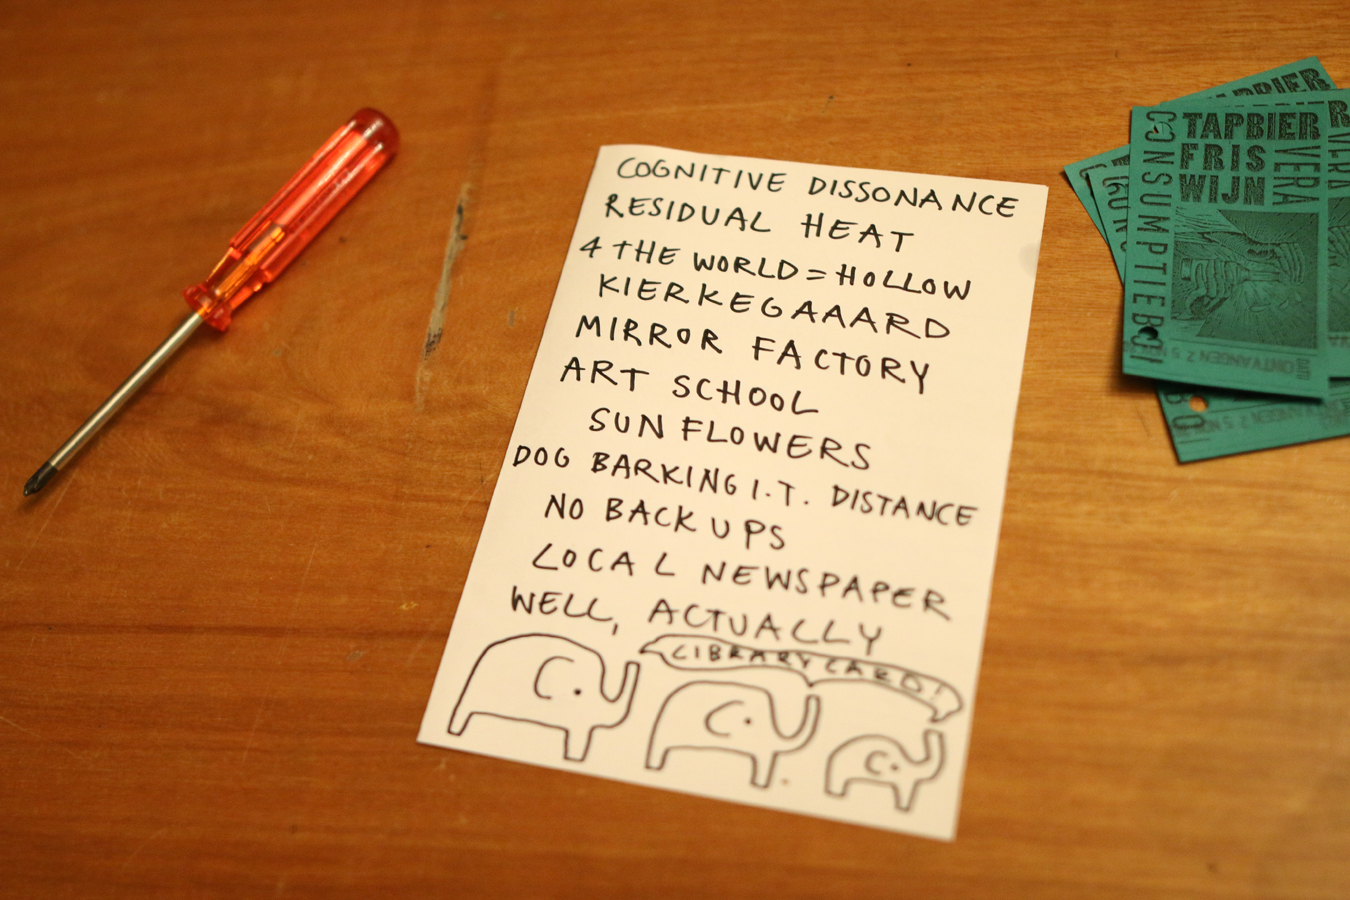 COGNITIVE DISSONANCE
RESIDUAL HEAT
4 THE WORLD = HOLLOW
KIERKEGAAARD
MIRROR FACTORY
ART SCHOOL
SUNFLOWERS
DOG BARKING I.T. DISTANCE
NO BACKUPS
LOCAL NEWSPAPER
WELL, ACTUALLY
LIBRARY CARD!
TAPBIER
TAPBIER
FRIS
WIJN
VERA
CONSUMPTIEBON
VERA
ONTVANGEN 2 5 NOV